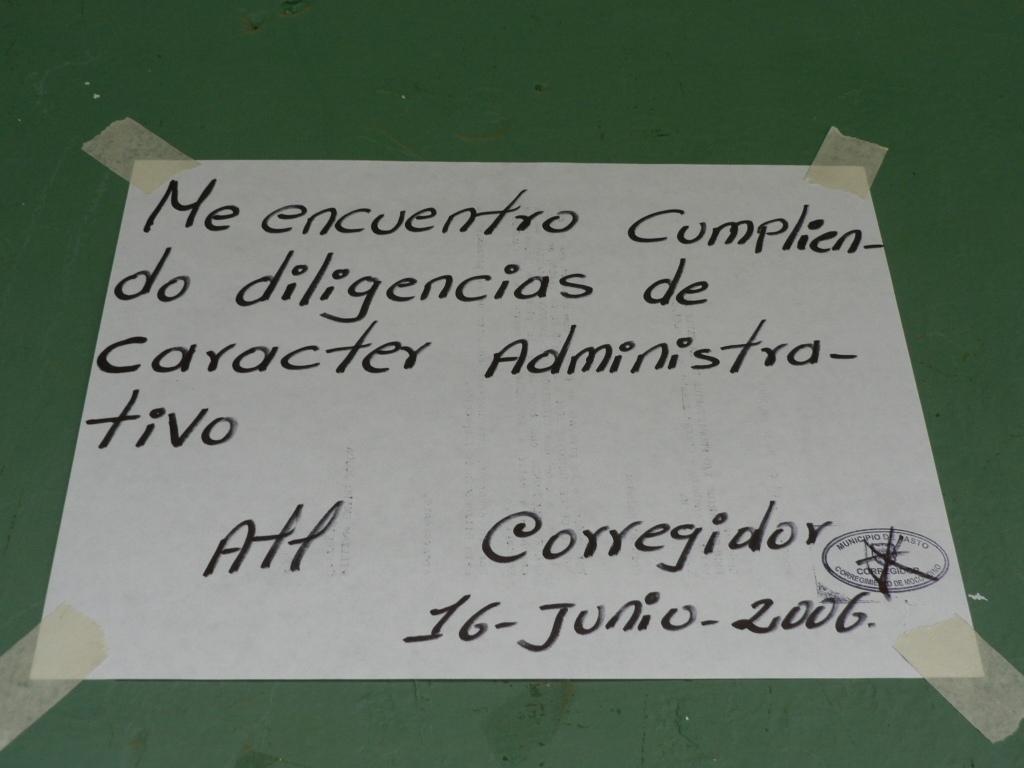 Me encuentro Cumplien-
do diligencias de
Caracter Administra-
tivo
Att Corregidor
16-Junio-2006.
MUNICIPIO DE PASTO
CORREGIDOR
CORREGIMIENTO DE